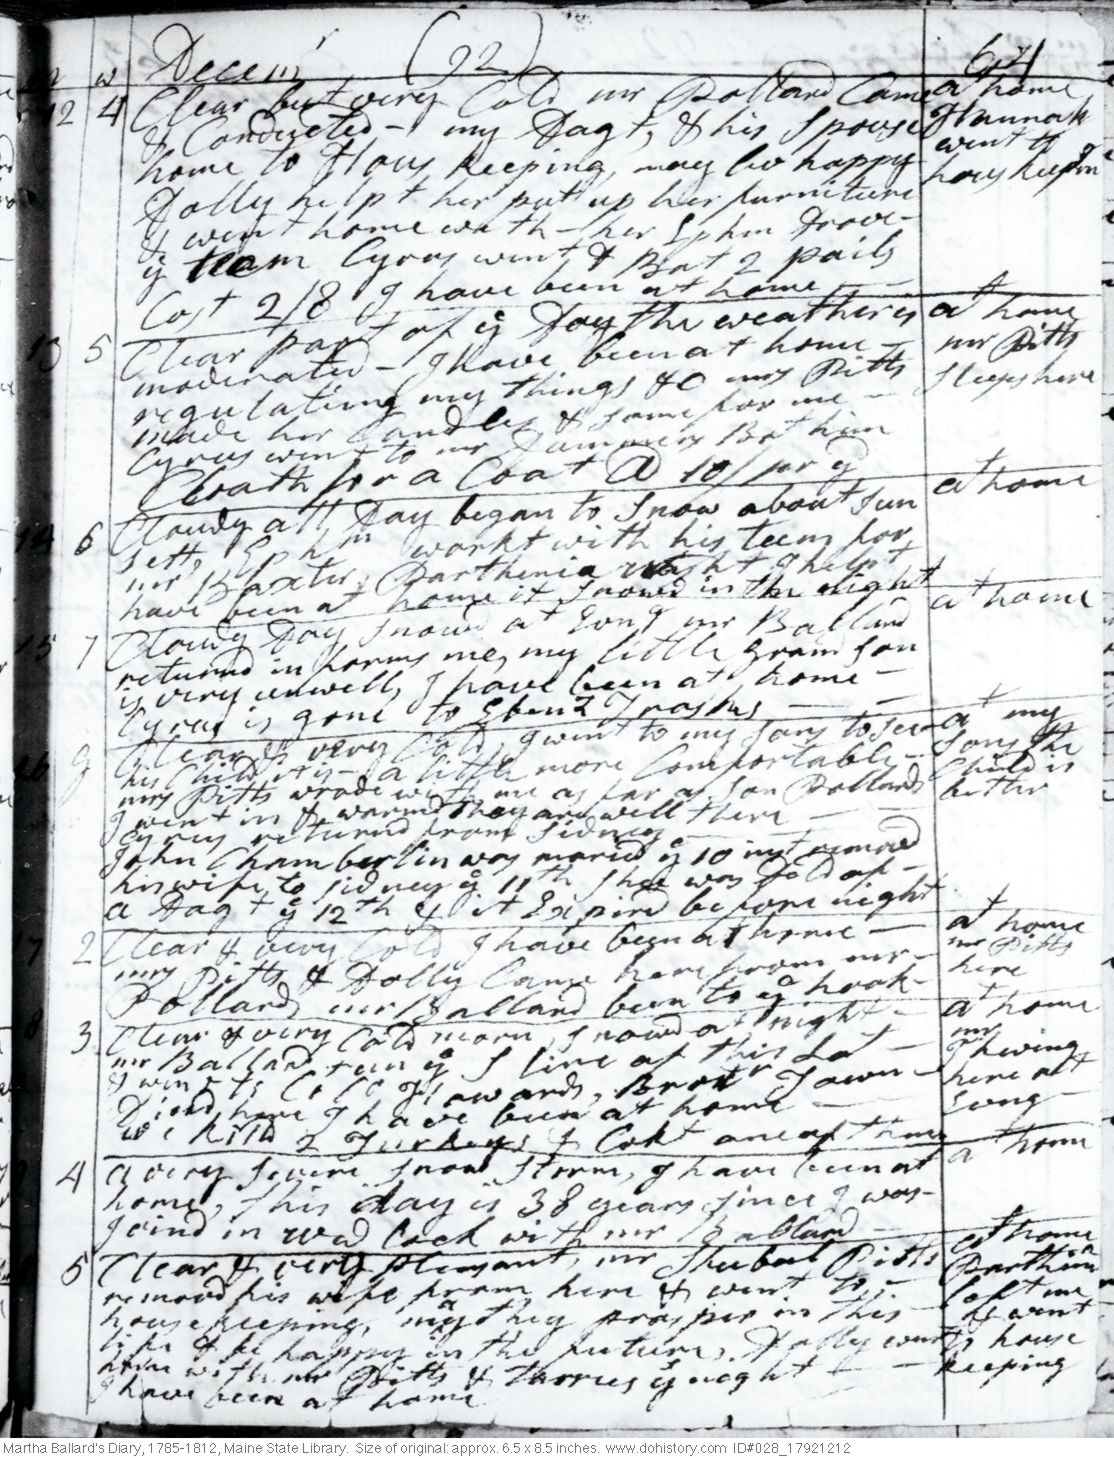 Decemr (92) 621
12 4 Clear but very Cold mr Pollard Came at home
& Conducted - my Dagt, & his Spouse Hannah
home to Hous keeping, may liv happy went to
Dolly helpt her put up her furniture hous keepin
& went home with - her Ephm Drove -
ye team Cyrus went & Bot 2 pails
Cost 2/8 I have been at home
13 5 Clear part of ye Day the weather is at home
moderated - I have been at home - mr Pitts
regulating my things &C mrs Pitts Sleeps here
made her Candles & some for me -
Cyrus went to mr Bot him
Cloath for a Coat @ 10/ pr yd
14 6 Cloudy all Day began to Snow about Sun at home
sett, Ephm workt with his team for
mr Baxter, Parthenia I helpt
have been at home it Snowd in the night
15 7 Cloudy Day Snowd at Evng mr Ballard at home
returnd in forms me, my little Grand Son
is very unwell, I have been at home -
Cyrus is gone to Ebenz
16 g Clear & very Cold, I went to my Sons to See at my
his Child, it is a little more Comfortable - Sons the
mrs Pitts wrode with me as far as Son Pollards Child is
I went in & warmd they are well there - better
Cyrus returnd from Sidney
John Chamberlin was maried ye 10 inst removd
his wife to Sidney ye 11th Shee was Dld of -
a Dagt ye 12th & it Expird before night
17 2 Clear & very Cold I have been at home - at home
mrs Pitts & Dolly Came here from mr - mr Pitts
Pollards mr Ballard been to ye hook - here
8 3 Clear & very Cold morn, Snowd at night - at home
mr Ballard run ye S line of this Lot - mr
& went to Colo Howards, Brot Town here at
Dind here I have been at home - Evng -
we killd 2 Turkeys & Cokt one of them
4 a very Severe Snow Storm, I have been at at home
home, This day is 38 years Since I was -
Joind in wed lock with mr Ballard
5 Clear & very Pleasant, mr Shubal Pitts at home
removd his wife from here & went to - Parthina
housekeeping, may they prosper in this - left me
life & be happy in the future, Dolly went & went
home with mr Pitts & tarries ye night - to house
I have been at home keeping
Martha Ballard's Diary, 1785-1812, Maine State Library. Size of original: approx. 6.5 x 8.5 inches. www.dohistory.com ID#028_17921212